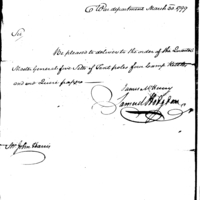 War department March 20 1799
Sir
Be pleased to deliver to the order of the Quarter
Master General five Setts of Tent poles for Camp Kettles
and one Quire paper
James McHenry
Samuel Hodgdon
Mr John Harris